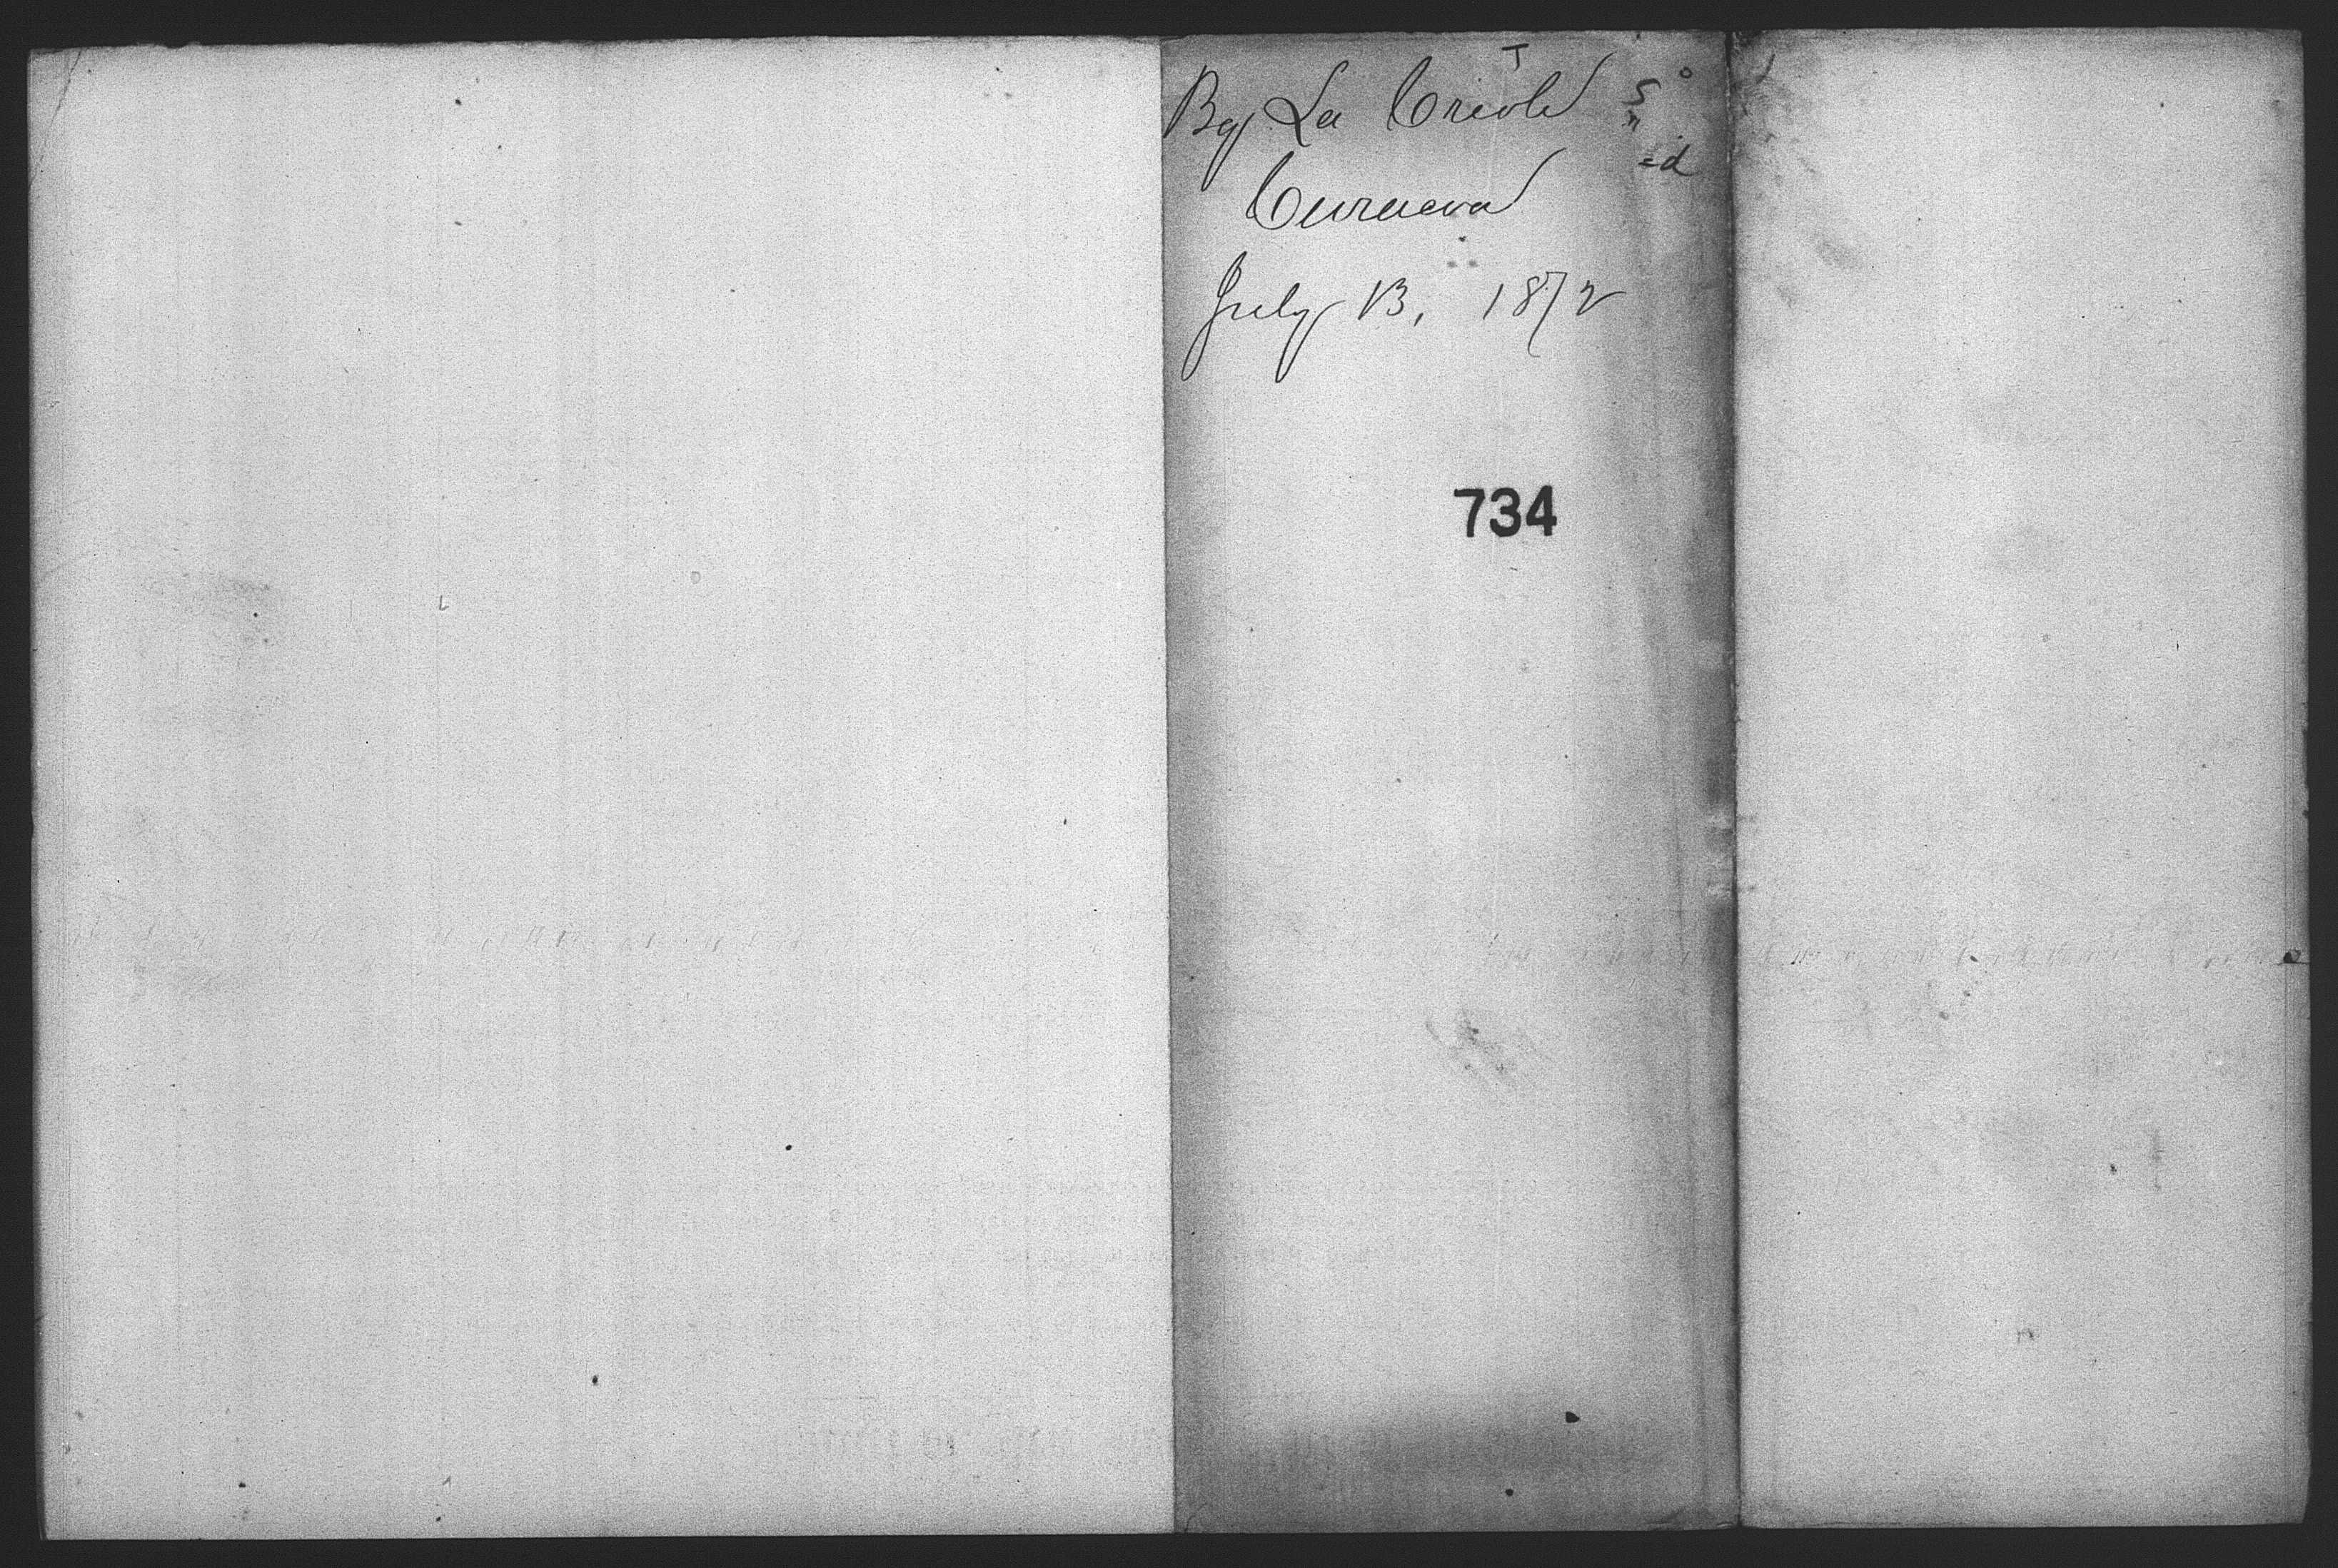 Bg La Creole
Curacoa
July 13, 1872
734